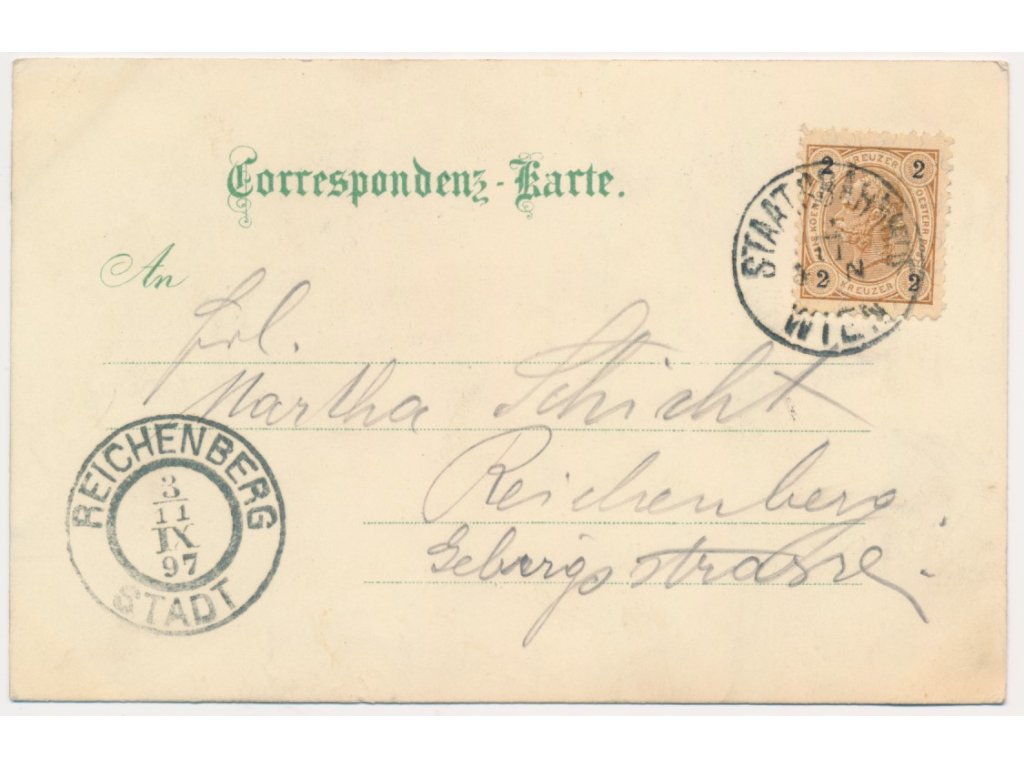 Correspondenz-Karte.
2 KREUZER 2
2 KREUZER 2
WIEN
An
Frl.
Martha Schicht
Reichenberg.
Gebirgsstrasse.
REICHENBERG
3
11
IX
97
STADT